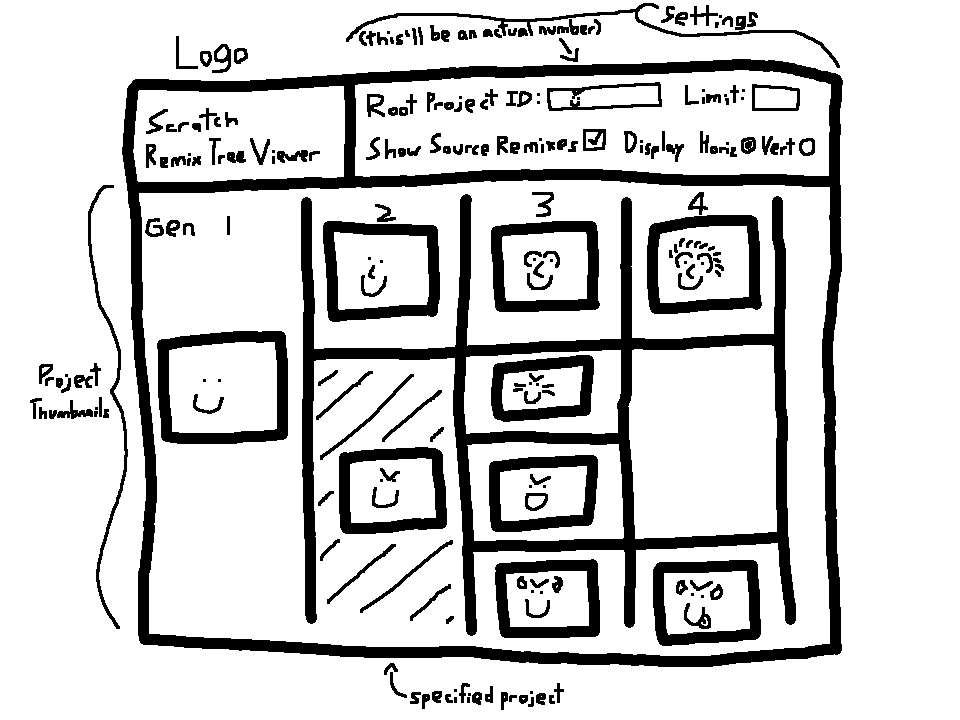 Settings
(this'll be an actual number)
Logo
Scratch
Remix Tree Viewer
Root Project ID: Limit:
Show Source Remixes Display Horiz Vert
Gen 1 2 3 4
Project
Thumbnails
specified project